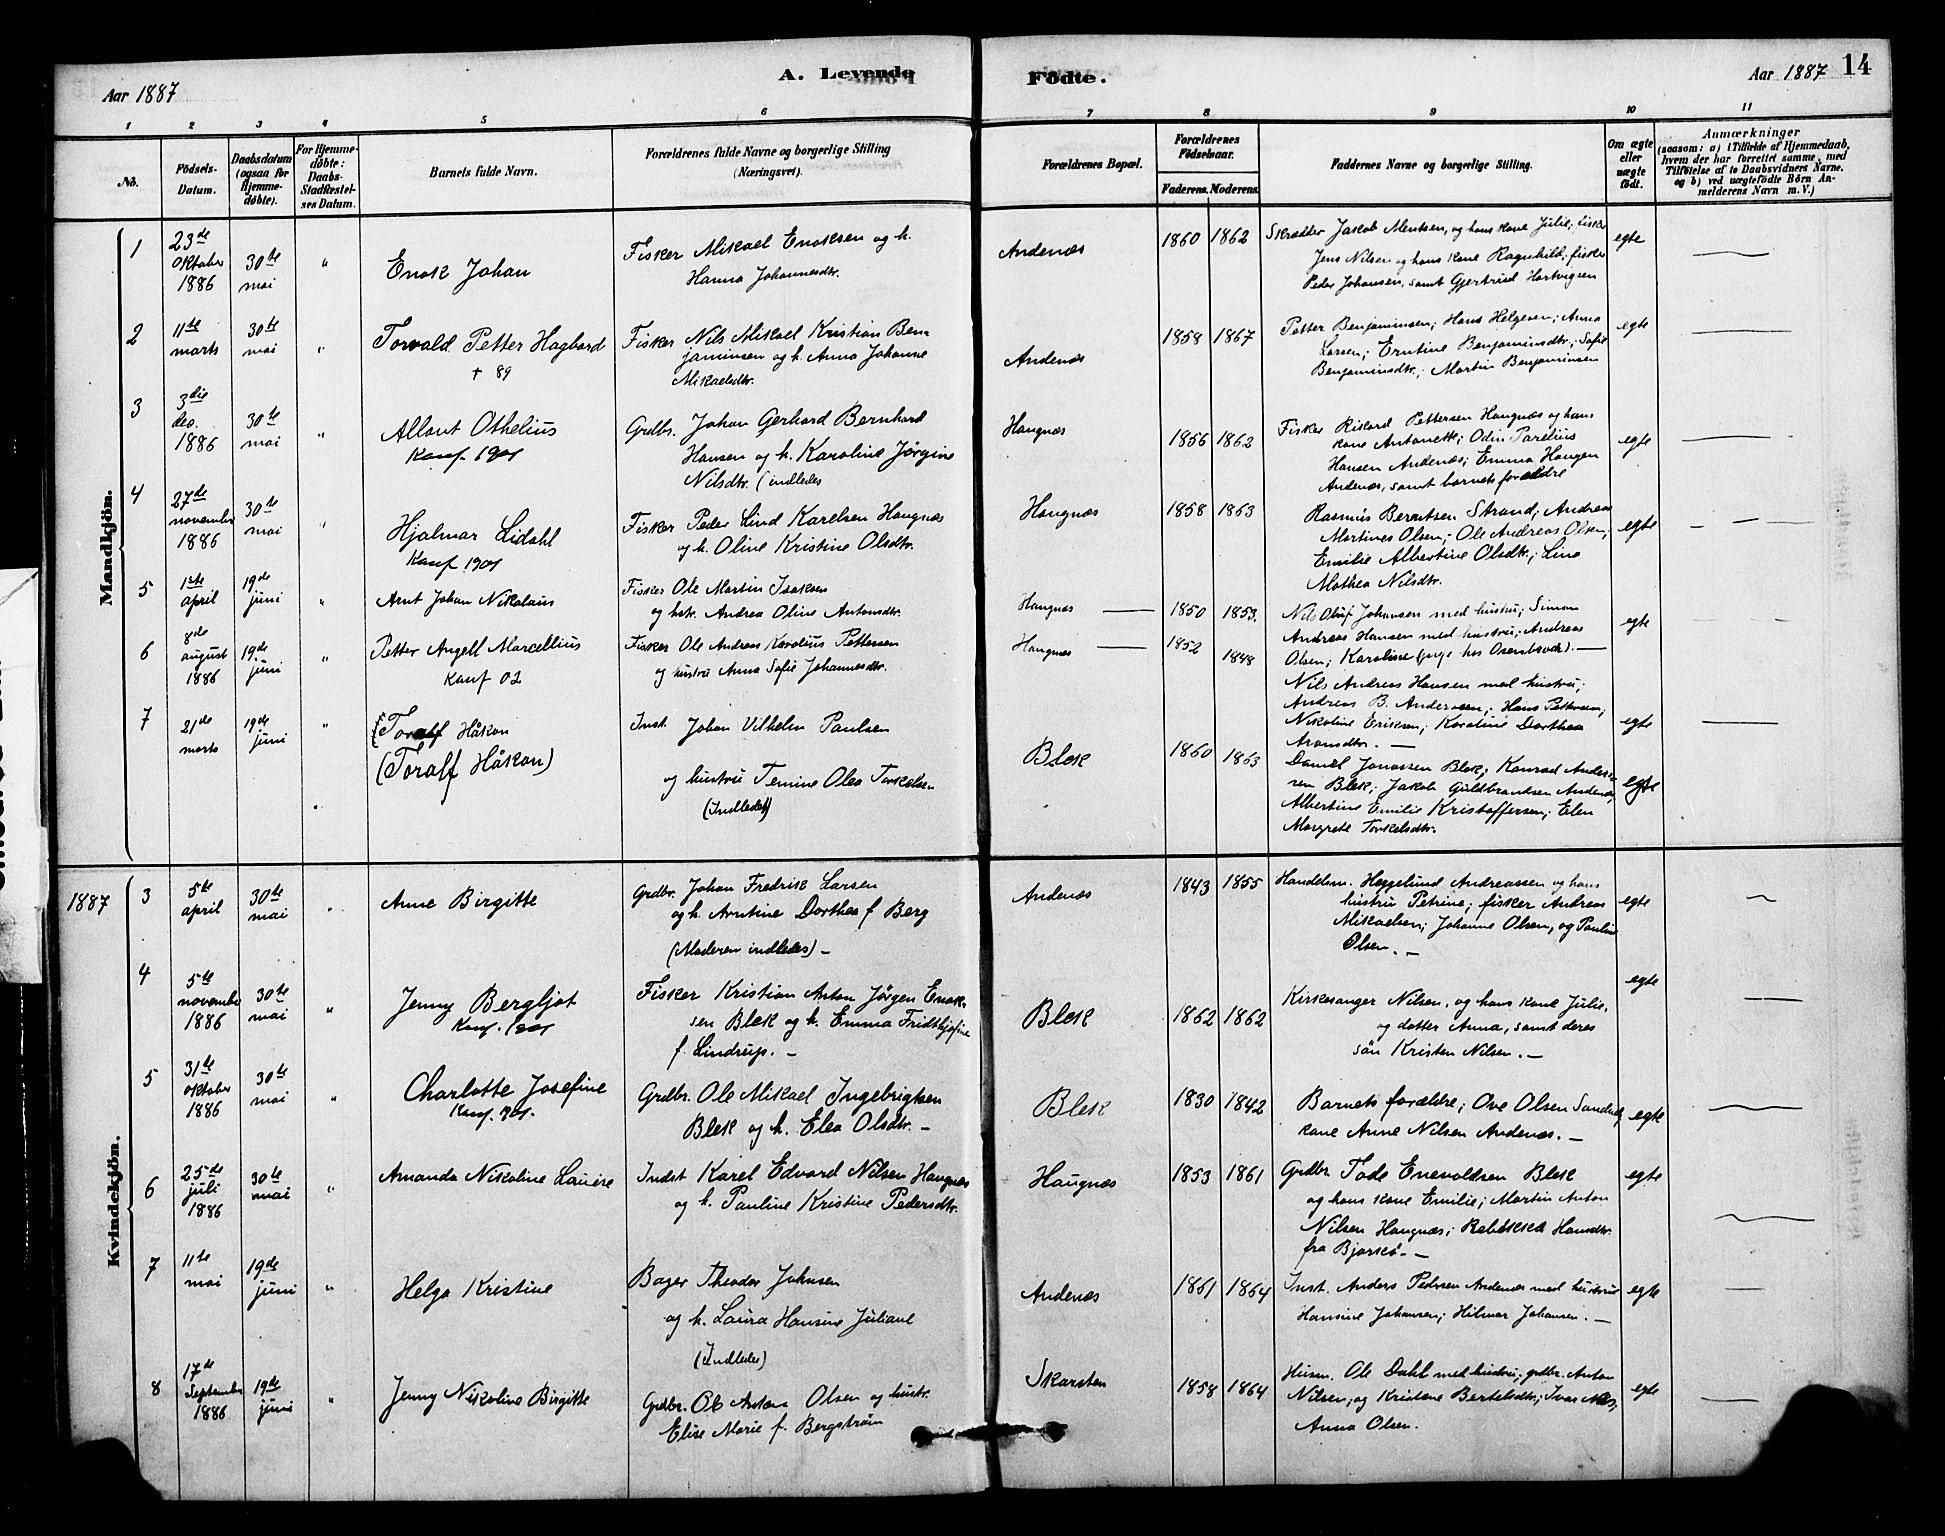 A. Levende Födte.
Aar 1887
Aar 1887 14
1 2 3 4 5 6 7 8 9 10 11
No.
Födsels-Datum.
Daabsdatum (ogsaa for Hjemme-döbte).
For Hjemme-döbte: Daabs-Stadfæstel-ses Datum.
Barnets fulde Navn.
Forældrenes fulde Navne og borgerlige Stilling (Næringsvei).
Forældrenes Bopæl.
Forældrenes Födselsaar.
Faderens. Moderens.
Faddernes Navne og borgerlige Stilling.
Om ægte eller uægte födt.
Anmærkninger
(saasom: a) i Tilfælde af Hjemmedaab, hvem der har forrettet samme, med Tilföielse af to Daabsvidners Navne, og b) ved uægtefödte Börn An-melderens Navn m. V.)
Mandkjön.
1 23de oktober 1886 30te mai " Enok Johan
Fisker Mikael Enoksen og h.
Hanna Johannesdtr.
Andenæs 1860 1862
Skrædder Jakob Mentsen, og hans kone Julie; fisker
Jens Nilsen og hans kone Ragnhild; fisker
Peder Johansen, samt Gjertrud Hartvigsen
egte
2 11te marts 30te mai " Torvald Petter Hagbard
+ 89
Fisker Nils Mikael Kristian Ben-
jaminsen og h. Anna Johanne
Mikaelsdtr.
Andenæs 1858 1867
Petter Benjaminsen; Hans Helgesen; Anna
Larsen; Erntine Benjaminsdtr.; Sofie
Benjaminsdtr.; Martin Benjaminsen
egte
3 3die des. 1886 30te mai " Allont Othelius
Konf. 1901
Grdbr. Johan Gerhard Bernhard
Hansen og h. Karoline Jørgine
Nilsdtr. (indledes
Haugnæs 1856 1862
Fisker Rikard Pettersen Haugnæs og hans
kone Antonette; Odin Parelius
Hansen Andenæs; Emma Haugen
Andenæs, samt barnets forældre
egte
4 27de november 1886 30te mai " Hjalmar Lidahl
Konf 1901
Fisker Peder Lind Karelsen Haugnæs
og h. Oline Kristine Olsdtr.
Haugnæs 1858 1863
Rasmus Berntsen Strand; Andreas
Martines Olsen; Ole Andreas Olsen;
Emilie Albertine Olsdtr.; Lina
Mathea Nilsdtr.
egte
5 1ste april 19de juni " Arnt Johan Nikolaus
Fisker Ole Martin Isaksen
og hstr. Andrea Oline Antonsdtr.
Haugnæs 1850 1853.
Nils Oluf Johansen med hustru; Simon
Andreas Hansen med hustru; Andreas
Olsen; Karoline
egte
6 8de august 1886 19de juni " Petter Angell Marcellius
Konf 02
Fisker Ole Andreas Karolius Pettersen
og hustru Anna Sofie Johannesdtr.
Haugnæs 1852 1848
Nils Andreas Hansen med hustru;
Andreas B. Andersen; Hans Pettersen;
Nikoline Eriksen; Karoline Dorthea
Aronsdtr.
egte
7 21de marts 19de juni " (Toralf Håkon
(Toralf Håkon)
Inst. Johan Vilhelm Paulsen
og hustru Temine Olea Torkelsen
(Indledet)
Blek 1860 1863
Daniel Jonassen Blek; Konrad Ander-
sen Blek; Jakob Guldbrandsen Andenæs;
Albertine Emilie Kristoffersen; Elen
Margrete Torkelsdtr.
egte
1887
Kvindekjön.
3 5te april 30te mai " Anne Birgitte
Grdbr. Johan Fredrik Larsen
og h. Arntine Dorthea f Berg
(Moderen indledes)
Andenæs 1843 1855
Handelsm. Heggelund Andreassen og hans
hustru Petrine; fisker Andreas
Mikaelsen; Johanne Olsen, og Pauline
Olsen.
egte
4 5te november 1886 30te mai " Jenny Bergljot
Konf. 1901
Fisker Kristian Anton Jørgen Enok-
sen Blek og h. Emma Fridthjofine
f. Lindrup.
Blek 1862 1862
Kirkesanger Nilsen, og hans kone Julie,
og datter Anna, samt deres
sön Kristen Nilsen.
egte
5 31te oktober 1886 30te mai " Charlotte Josefine
Konf. 901.
Grdbr. Ole Mikael Ingebrigtsen
Blek og h. Elea Olsdtr.
Blek 1830 1842
Barnets forældre; Ove Olsen
kone Anne Nilsen Andenæs.
egte
6 25de juli 1886 30te mai " Amanda Nikoline Lauise
Indst Karel Edvard Nilsen Haugnæs
og h. Pauline Kristine Pedersdtr.
Haugnæs 1853 1861
Grdbr Tode Enevoldsen Blek
og hans kone Emilie; Martin Anton
Nilsen Haugnæs; Rebekka Hansdtr.
fra Bjarkö.
egte
7 11te mai 19de juni " Helga Kristine
Bager Theodor Johnsen
og h. Laura Hansine Juliane
(Indledes)
Andenæs 1861 1864
Inst. Anders Pedersen Andenæs med hustru
Hansine Johansen; Hilmar Johansen.
egte
8 17de september 1886 19de juni " Jenny Nikoline Birgitte
Grdbr. Ole Anton Olsen og hustr.
Elise Marie f. Bergström
Skarsten 1858 1864
Husm. Ole Dahl med hustru; grdbr. Anton
Nilsen, og Kristene Bertelsdtr; Ivar
Anna Olsen.
egte